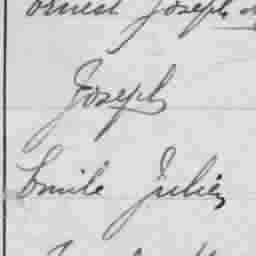 Ernest Joseph
Joseph
Emile Julien